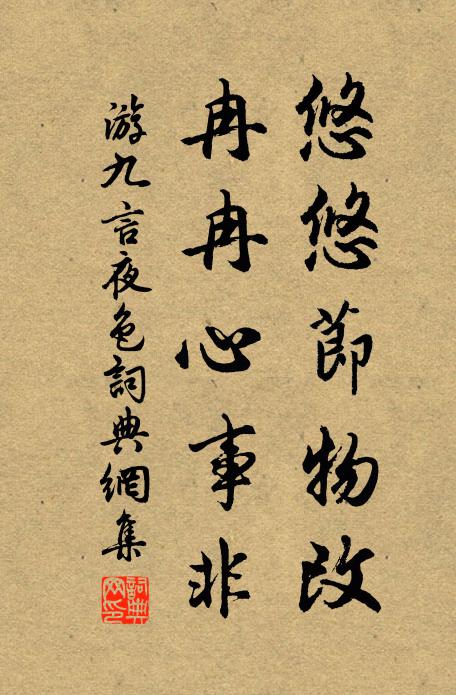 悠悠節物改
冉冉心事非
游九言夜色詞典網集
詞典網印